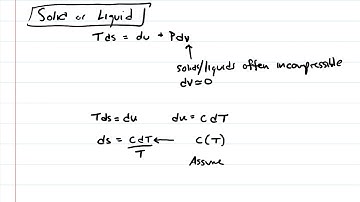 Solid or Liquid
Tds = du + Pdv
solids/liquids often incompressible
dv ≈ 0
Tds = du    du = CdT
ds = CdT/T ← C(T)
Assume